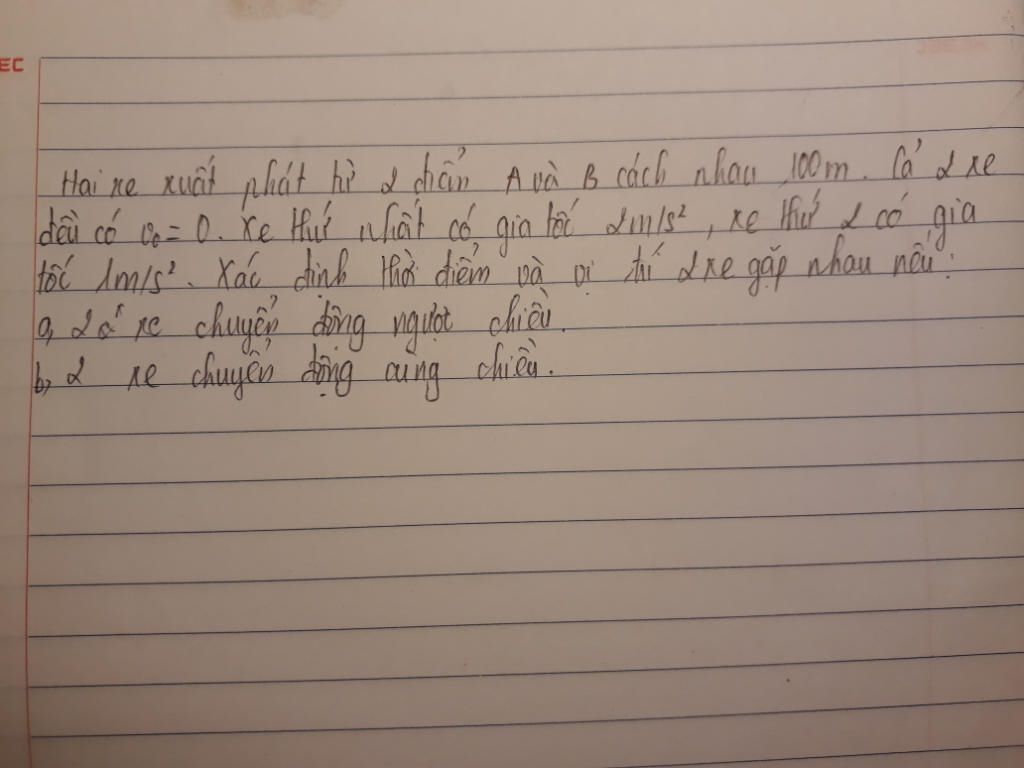 EC
Hai xe xuất phát từ 2 điểm A và B cách nhau 100m. Cả 2 xe
đều có v₀ = 0. Xe thứ nhất có gia tốc 2m/s², xe thứ 2 có gia
tốc 1m/s². Xác định thời điểm và vị trí 2 xe gặp nhau nếu:
a, 2 xe chuyển động ngược chiều.
b, 2 xe chuyển động cùng chiều.